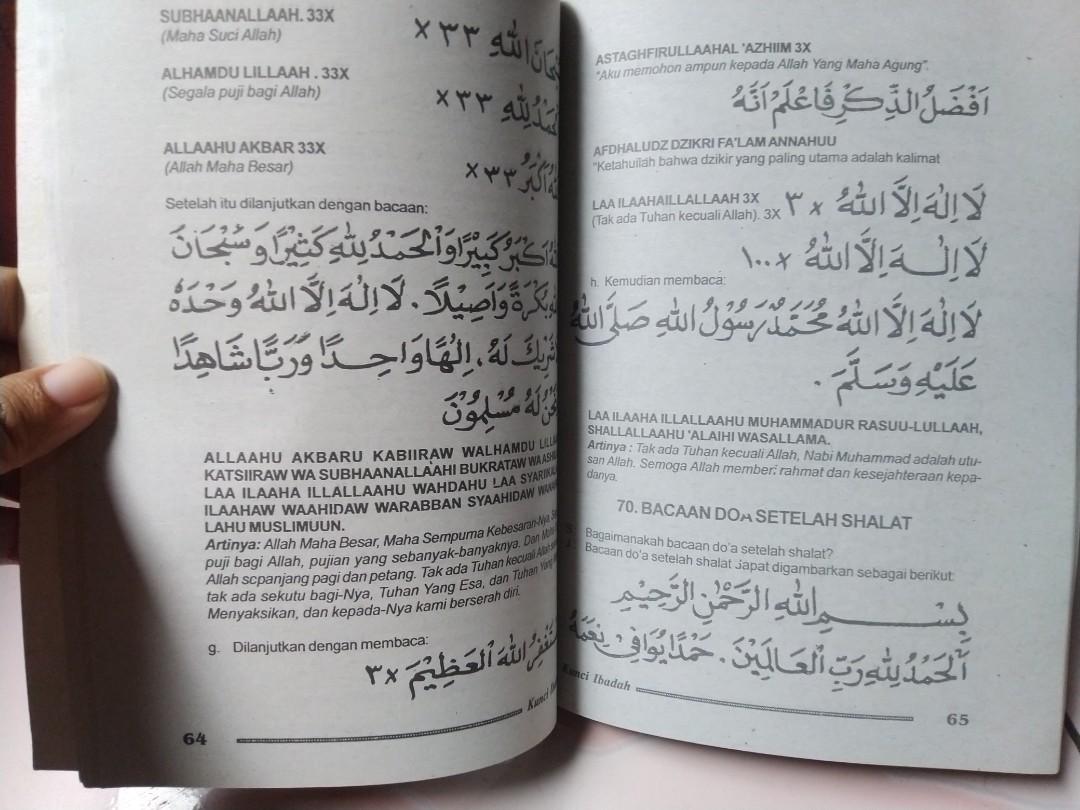 SUBHAANALLAAH. 33X
(Maha Suci Allah)
اللهِ ٣٣ ×
ALHAMDU LILLAAH . 33X
(Segala puji bagi Allah)
٣٣ ×
ALLAAHU AKBAR 33X
(Allah Maha Besar)
اَكْبَرُ ٣٣ ×
Setelah itu dilanjutkan dengan bacaan:
اَكْبَرُ كَبِيْرًا وَالْحَمْدُ لِلّٰهِ كَثِيْرًا وَسُبْحَانَ
بُكْرَةً وَاَصِيْلًا . لَا اِلٰهَ اِلَّا اللهُ وَحْدَهُ
شَرِيْكَ لَهُ، اِلٰهًا وَاحِدًا وَرَبًّا شَاهِدًا
لَهُ مُسْلِمُوْنَ
ALLAAHU AKBARU KABIIRAW WALHAMDU
KATSIIRAW WA SUBHAANALLAAHI BUKRATAW
LAA ILAAHA ILLALLAAHU WAHDAHU LAA
ILAAHAW WAAHIDAW WARABBAN SYAAHIDAW
LAHU MUSLIMUUN.
Artinya: Allah Maha Besar, Maha Sempurna Kebesaran-Nya
puji bagi Allah, pujian yang sebanyak-banyaknya. Dan
Allah scpanjang pagi dan petang. Tak ada Tuhan kecuali Allah
tak ada sekutu bagi-Nya, Tuhan Yang Esa, dan Tuhan Yang
Menyaksikan, dan kepada-Nya kami berserah diri.
g. Dilanjutkan dengan membaca:
اللهَ الْعَظِيْمَ ×٣
Kunci
64
ASTAGHFIRULLAAHAL 'AZHIIM 3X
"Aku memohon ampun kepada Allah Yang Maha Agung".
اَفْضَلُ الذِّكْرِ فَاعْلَمْ اَنَّهُ
AFDHALUDZ DZIKRI FA'LAM ANNAHUU
"Ketahuilah bahwa dzikir yang paling utama adalah kalimat
LAA ILAAHAILLALLAAH 3X
(Tak ada Tuhan kecuali Allah). 3X
لَا اِلٰهَ اِلَّا اللهُ × ٣
لَا اِلٰهَ اِلَّا اللهُ × ١٠٠
h. Kemudian membaca:
لَا اِلٰهَ اِلَّا اللهُ مُحَمَّدٌ رَسُوْلُ اللهِ صَلَّى اللهُ
عَلَيْهِ وَسَلَّمَ .
LAA ILAAHA ILLALLAAHU MUHAMMADUR RASUU-LULLAAH,
SHALLALLAAHU 'ALAIHI WASALLAMA.
Artinya : Tak ada Tuhan kecuali Allah, Nabi Muhammad adalah utu-
san Allah. Semoga Allah memberi rahmat dan kesejahteraan kepa-
danya.
70. BACAAN DOA SETELAH SHALAT
Bagaimanakah bacaan do'a setelah shalat?
Bacaan do'a setelah shalat dapat digambarkan sebagai berikut:
بِسْمِ اللهِ الرَّحْمٰنِ الرَّحِيْمِ
اَلْحَمْدُ لِلّٰهِ رَبِّ الْعَالَمِيْنَ . حَمْدًا يُوَافِيْ نِعَمَهُ
Kunci Ibadah
65